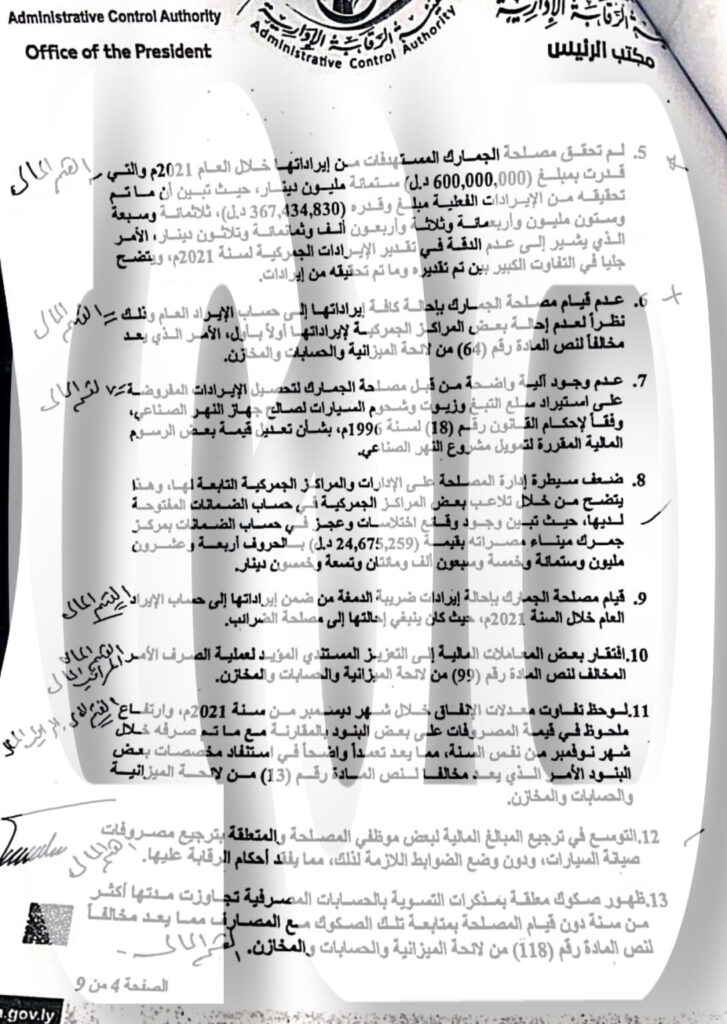 Administrative Control Authority
Office of the President
Administrative Control Authority
الرقابة الإدارية
مكتب الرئيس
5. لم تحقق مصلحة الجمارك المستهدفات من إيراداتها خلال العام 2021م والتي
قدرت بمبلغ (600,000,000 د.ل) ستمائة مليون دينار، حيث تبين أن ما تم
تحقيقه من الإيرادات الفعلية مبلغ وقدره (367,434,830 د.ل)، ثلاثمائة وسبعة
وستون مليون وأربعمائة وثلاثة وأربعون ألف وثمانمائة وثلاثون دينار، الأمر
الذي يشير إلى عدم الدقة في تقدير الإيرادات الجمركية لسنة 2021م، ويتضح
جليا في التفاوت الكبير بين تم تقديره وما تم تحقيقه من إيرادات.
6. عدم قيام مصلحة الجمارك بإحالة كافة إيراداتها إلى حساب الإيراد العام وذلك
نظراً لعدم إحالة بعض المراكز الجمركية لإيراداتها أولاً بأول، الأمر الذي يعد
مخالفاً لنص المادة رقم (64) من لائحة الميزانية والحسابات والمخازن.
7. عدم وجود آلية واضحة من قبل مصلحة الجمارك لتحصيل الإيرادات المفروضة
على استيراد سلع التبغ وزيوت وشحوم السيارات لصالح جهاز النهر الصناعي،
وفقاً لإحكام القانون رقم (18) لسنة 1996م، بشأن تعديل قيمة بعض الرسوم
المالية المقررة لتمويل مشروع النهر الصناعي.
8. ضعف سيطرة إدارة المصلحة على الإدارات والمراكز الجمركية التابعة لها، وهذا
يتضح من خلال تلاعب بعض المراكز الجمركية في حساب الضمانات المفتوحة
لديها، حيث تبين وجود وقائع اختلاسات وعجز في حساب الضمانات بمركز
جمرك ميناء مصراته بقيمة (24,675,259 د.ل) بالحروف أربعة وعشرون
مليون وستمائة وخمسة وسبعون ألف ومائتان وتسعة وخمسون دينار.
9. قيام مصلحة الجمارك بإحالة إيرادات ضريبة الدمغة من ضمن إيراداتها إلى حساب الإيراد
العام خلال السنة 2021م، حيث كان ينبغي إحالتها إلى مصلحة الضرائب.
10. افتقار بعض المعاملات المالية إلى التعزيز المستندي المؤيد لعملية الصرف الأمر
المخالف لنص المادة رقم (99) من لائحة الميزانية والحسابات والمخازن.
11. لوحظ تفاوت معدلات الإنفاق خلال شهر ديسمبر من سنة 2021م، وارتفاع
ملحوظ في قيمة المصروفات على بعض البنود بالمقارنة مع ما تم صرفه خلال
شهر نوفمبر من نفس السنة، مما يعد تعمداً واضحاً في استنفاد مخصصات بعض
البنود الأمر الذي يعد مخالفا لنص المادة رقم (13) من لائحة الميزانية
والحسابات والمخازن.
12. التوسع في ترجيع المبالغ المالية لبعض موظفي المصلحة والمتعلقة بترجيع مصروفات
صيانة السيارات، ودون وضع الضوابط اللازمة لذلك، مما يفقد أحكام الرقابة عليها.
13. ظهور صكوك معلقة بمذكرات التسوية بالحسابات المصرفية تجاوزت مدتها أكثر
من سنة دون قيام المصلحة بمتابعة تلك الصكوك مع المصارف مما يعد مخالفاً
لنص المادة رقم (118) من لائحة الميزانية والحسابات والمخازن.
القسم المالي
الصفحة 4 من 9
.gov.ly